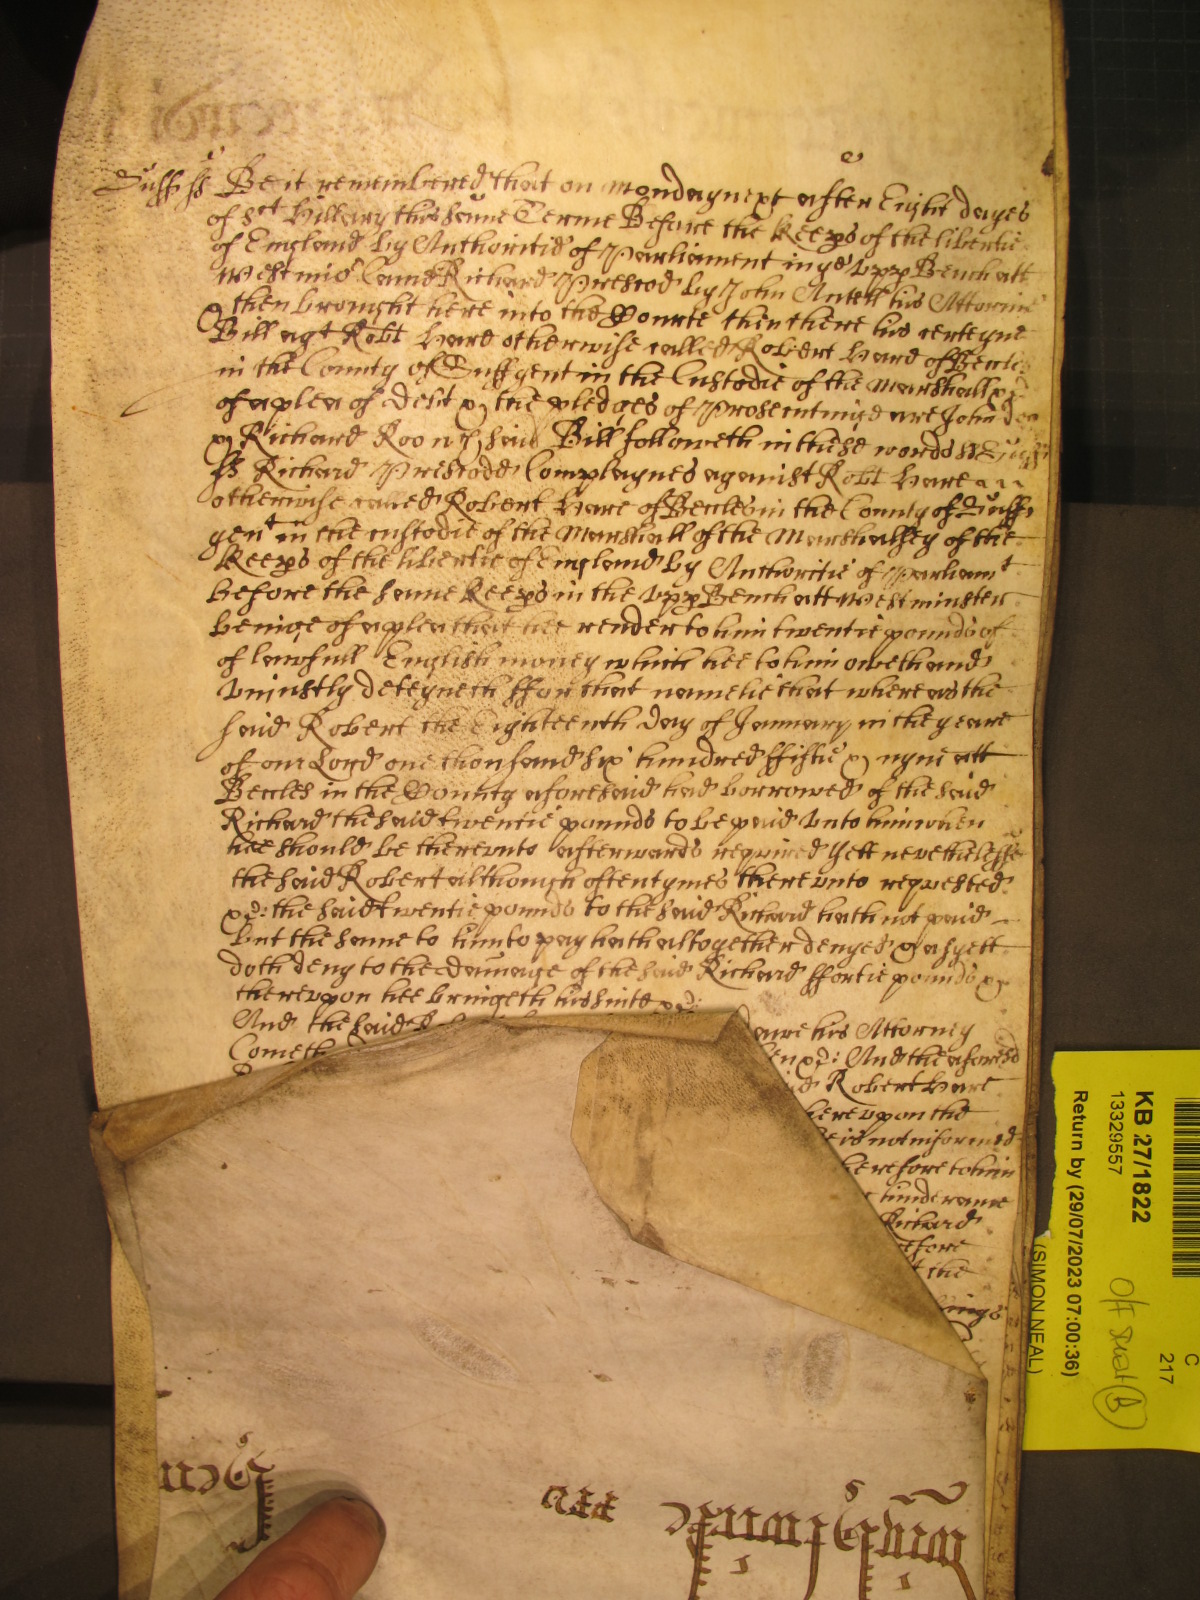 Suff ss Be it remembered that on Monday next after Eight dayes
of St Hillary this same Terme Before the Keeps of the libertie
of England by Authoritie of Parliament in ye upp Bench att
Westmr Came Richard Prestod by John Antell his Attornie
& then brought here into the Courte then there his certeyne
Bill agt Robt Hare otherwise called Robert Hare of Beccles
in the County of Suff gent in the Custodie of the Marshall &c
of a plea of Debt & the pledges of Prosecuting are John Doe
& Richard Roo wch said Bill followeth in these words ss Suff
ss Richard Prestodd Complaynes against Robt Hare
otherwise called Robert Hare of Beccles in the County of Suff
gent in the custodie of the Marshall of the Marshalsey of the
Keeps of the libertie of England by Authoritie of Parliamt
before the same Keeps in the upp Bench att Westminster
beinge of a plea that hee render to him twentie pounds of
of lawfull English money which hee to him oweth and
uniustly deteyneth ffor that namelie that whereas the
said Robert the Eighteenth day of January in the yeare
of our Lord one thousand six hundred ffiftie & nyne att
Beccles in the County aforesaid had borrowed of the said
Richard the said twentie pounds to be paid unto him when
hee should be thereunto afterwards required Yett nevethelesse
the said Robert although oftentymes thereunto requested
&c: the said twentie pounds to the said Richard hath not paid
but the same to him to pay hath altogether denyed & as yett
doth deny to the damage of the said Richard ffortie pounds &
thereupon hee bringeth his suite &c:
And the said his Attorney
Cometh &c: And the aforesd
Robert Hare
hereupon the
is not informed
herefore to him
hinderance
Richard
the
KB 27/1822
13329557
Return by (29/07/2023 07:00:36)
(SIMON NEAL)
C
217